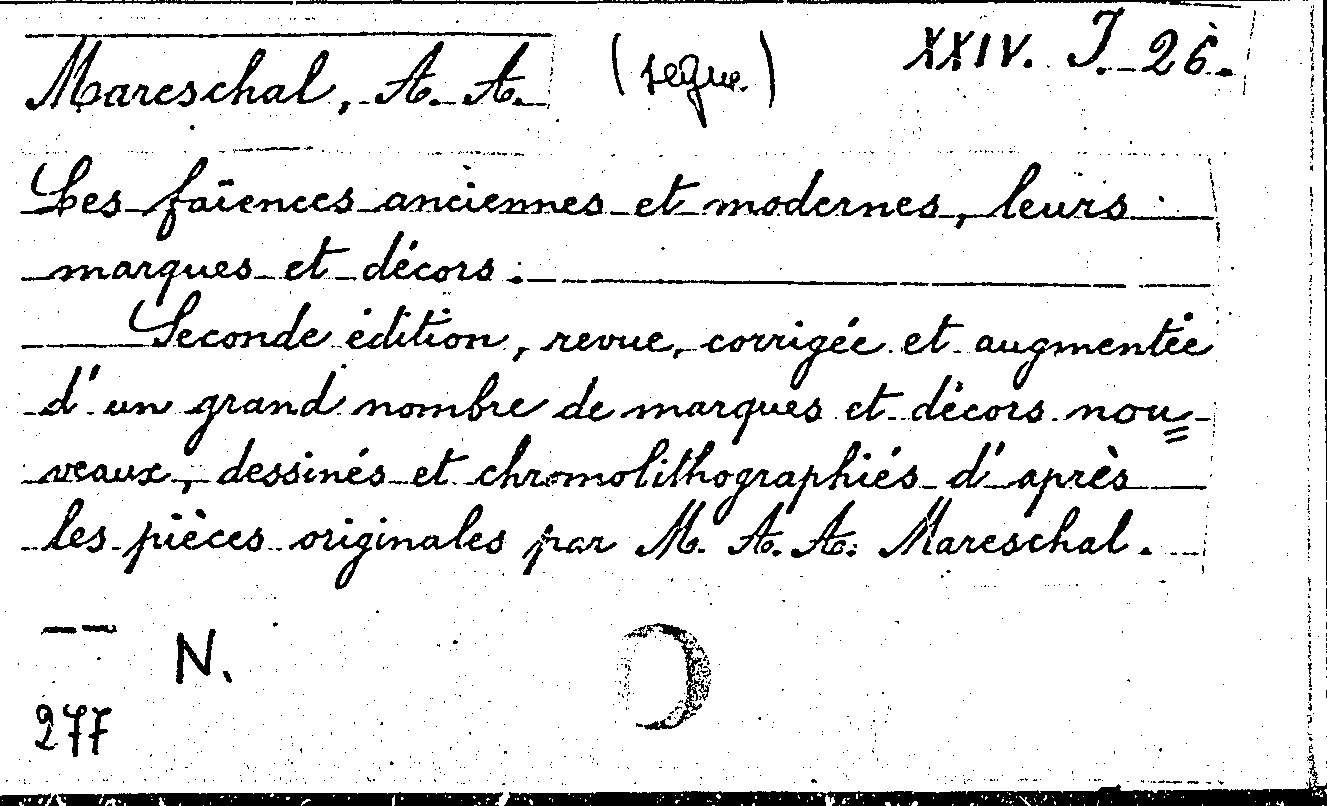 Mareschal, A. A. (segue.) XXIV. J. 26.
Les faïences anciennes et modernes, leurs
marques et décors.
Seconde édition, revue, corrigée et augmentée
d'un grand nombre de marques et décors nou=
veaux, dessinés et chromolithographiés d'après
les pièces originales par M. A. A. Mareschal.
N.
277